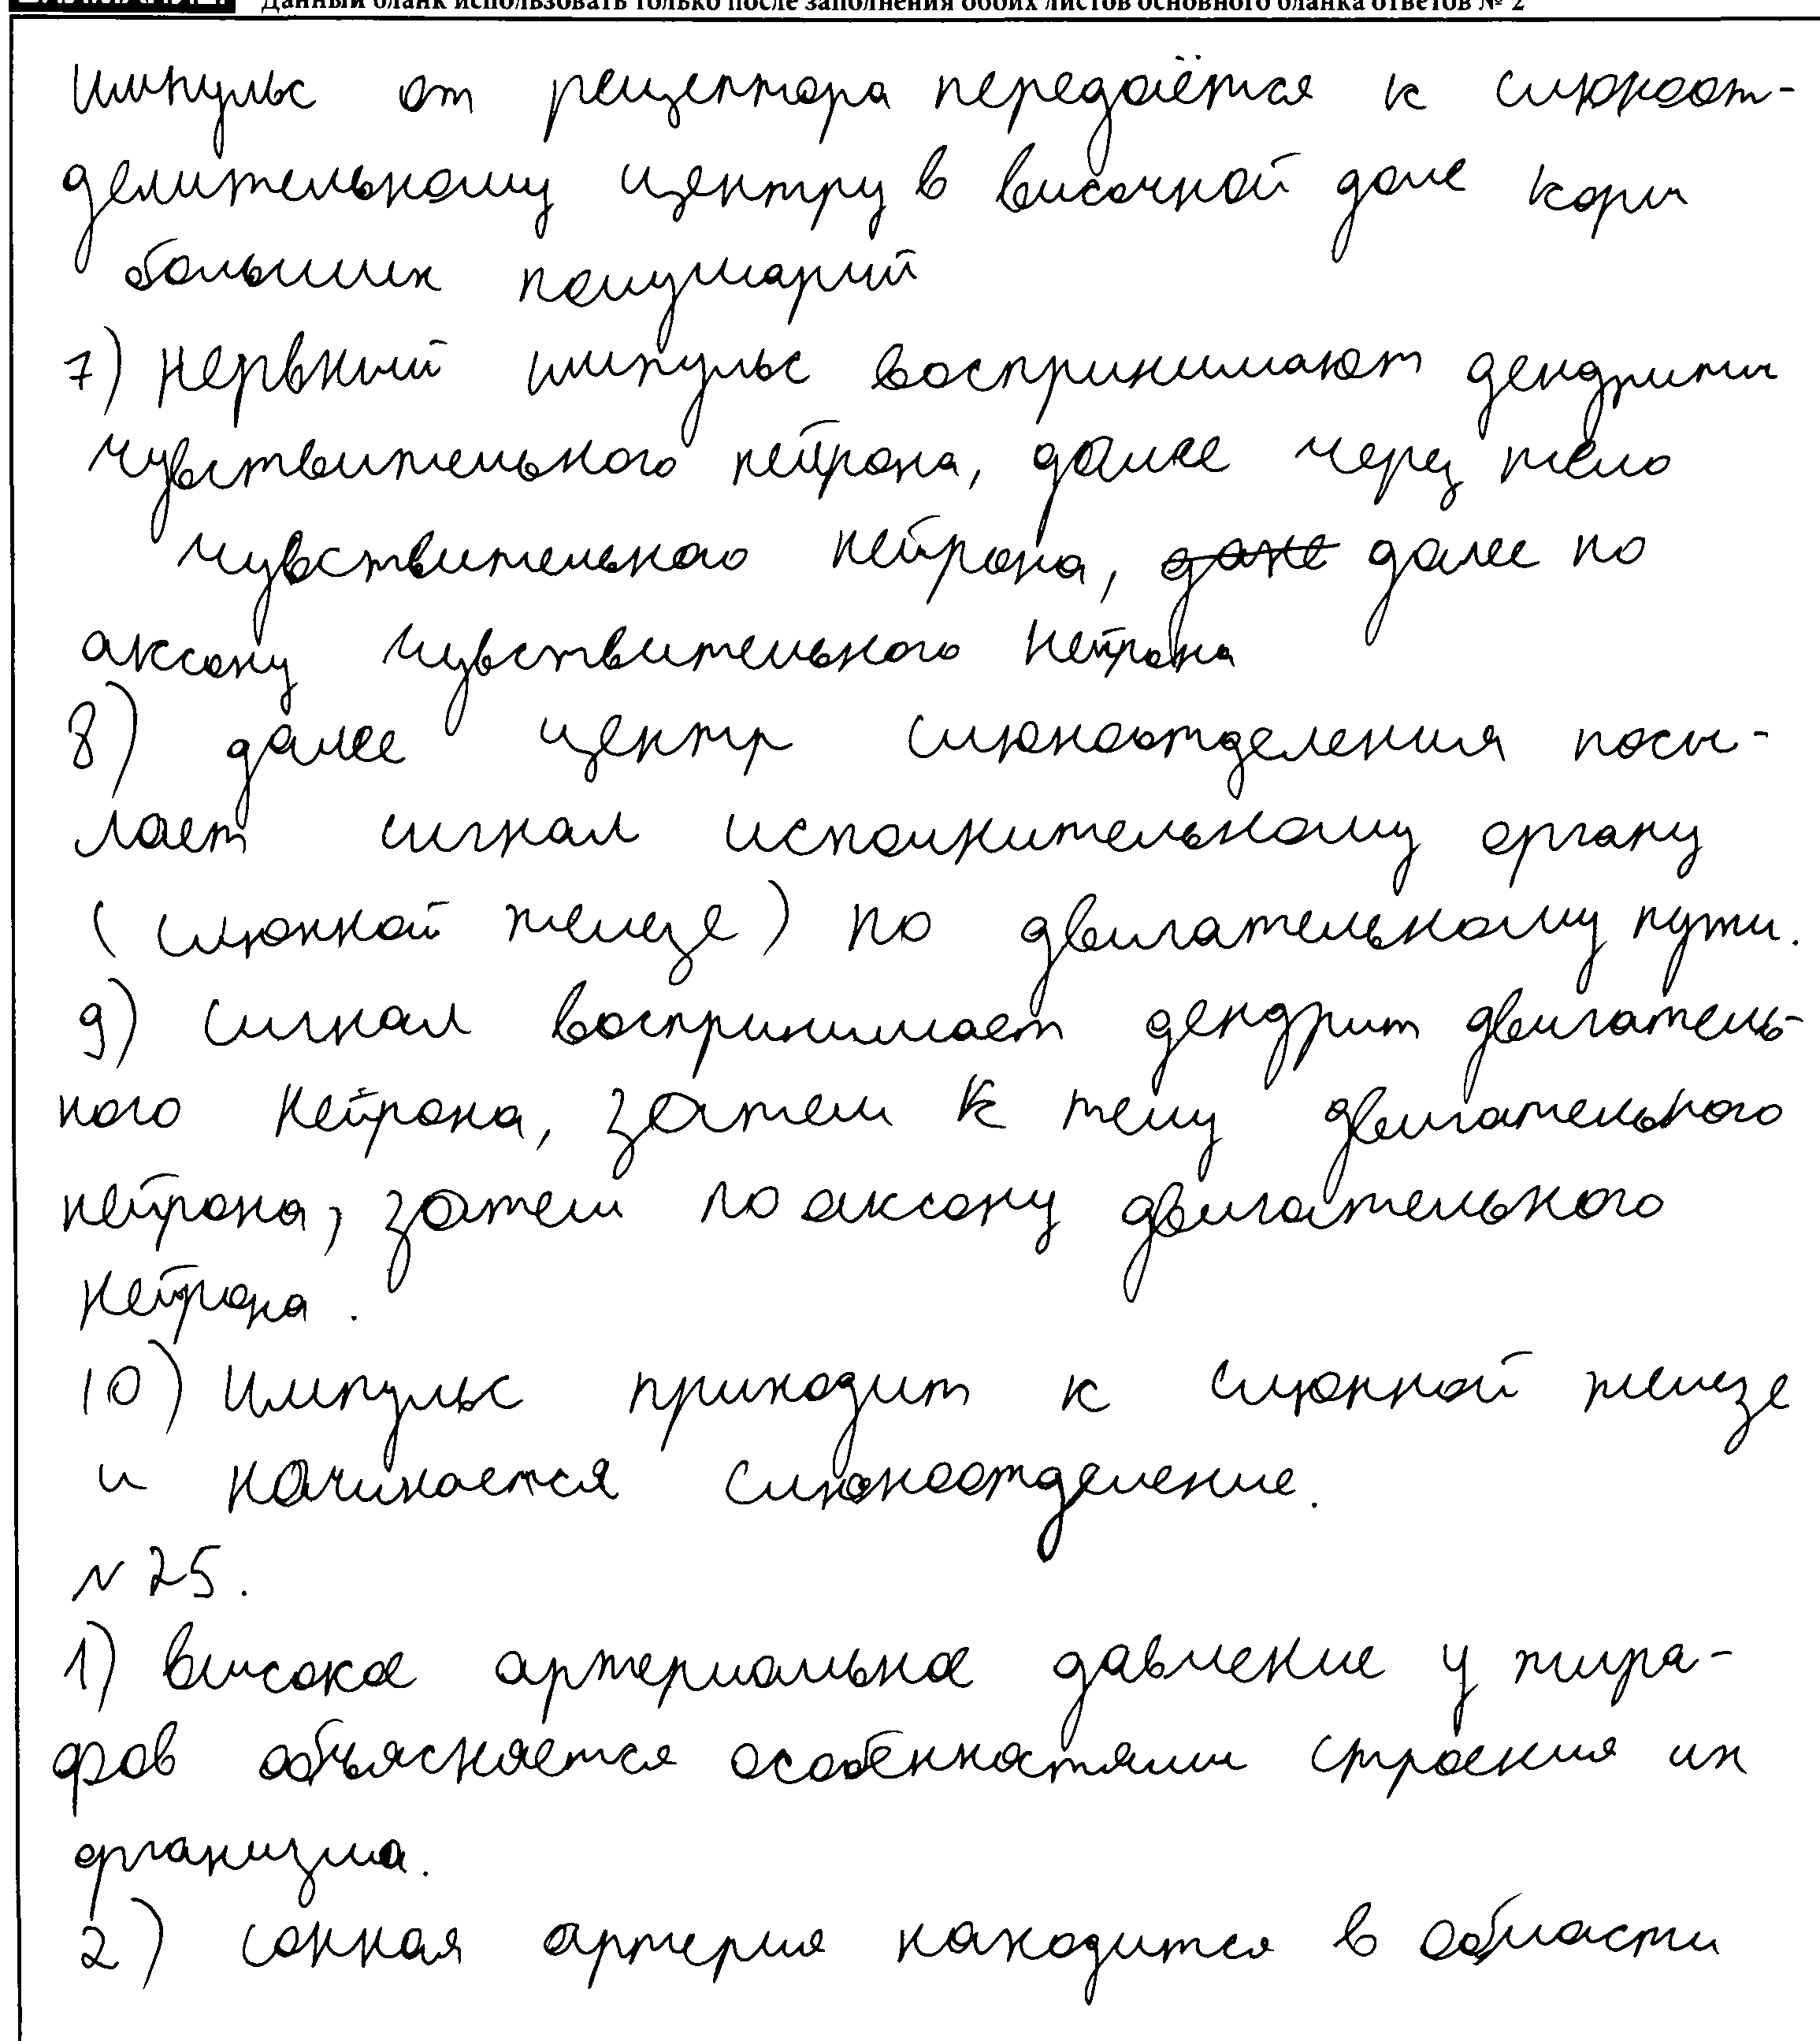 Данный бланк использовать только после заполнения обоих листов основного бланка ответов № 2
импульс от рецептора передаётся к слюноот-
делительному центру в височной доле коры
больших полушарий
7) нервный импульс воспринимают дендриты
чувствительного нейрона, далее через тело
чувствительного нейрона, даже далее по
аксону чувствительного нейрона
8) далее центр слюноотделения посы-
лает сигнал исполнительному органу
(слюнной железе) по двигательному пути.
9) сигнал воспринимает дендрит двигатель-
ного нейрона, затем к телу двигательного
нейрона, затем по аксону двигательного
нейрона.
10) Импульс приходит к слюнной железе
и начинается слюноотделение.
N 25.
1) высокое артериальное давление у жира-
фов объясняется особенностями строения их
организма.
2) сонная артерия находится в области